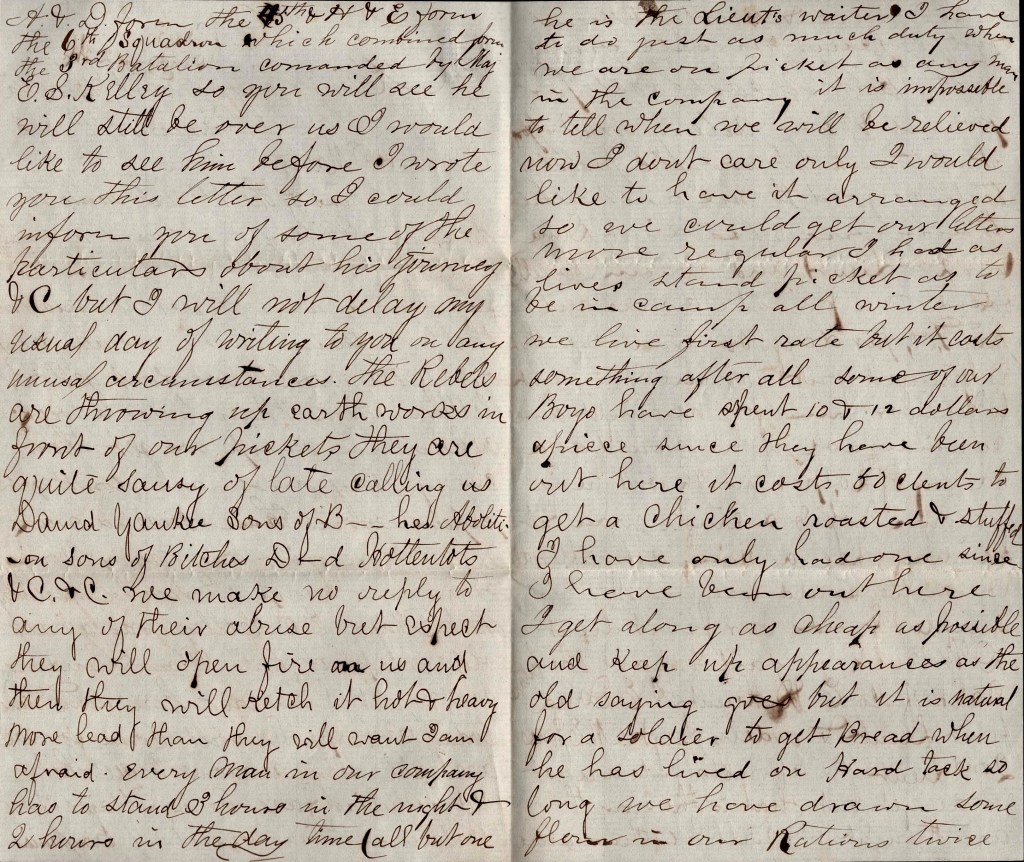 A. & D. form the 5th & H & E form
the 6th Squadron which combined form
the 3rd Batalion comanded by Maj
E. S. Kelley so you will see he
will still be over us I would
like to see him before I wrote
you this letter so I could
inform you of some of the
particulars about his journey
&C but I will not delay my
usual day of writing to you on any
unusal circumstances. The Rebels
are throwing up earth works in
front of our pickets they are
quite sausy of late calling us
Damd Yankee Sons of B--hes Aboliti-
-on sons of Bitches D-d Hottentots
&C. &C. we make no reply to
any of their abuse but expect
they will open fire on us and
then they will ketch it hot & heavy
more lead than they will want I am
afraid. Every man in our company
has to stand 3 hours in the night &
2 hours in the day time (all but one
he is the Lieuts waiter) I have
to do just as much duty when
we are on picket as any man
in the company it is impossible
to tell when we will be relieved
now I dont care only I would
like to have it arranged
so we could get our letters
more regular I had as
lives stand picket as to
be in camp all winter
we live first rate but it costs
something after all some of our
Boys have spent 10 & 12 dollars
apiece since they have been
out here it costs 50 cents to
get a chicken roasted & stuffed
I have only had one since
I have been out here
I get along as cheap as possible
and keep up appearances as the
old saying goes but it is natural
for a soldier to get Bread when
he has lived on Hard tack so
long we have drawn some
flour in our Rations twice